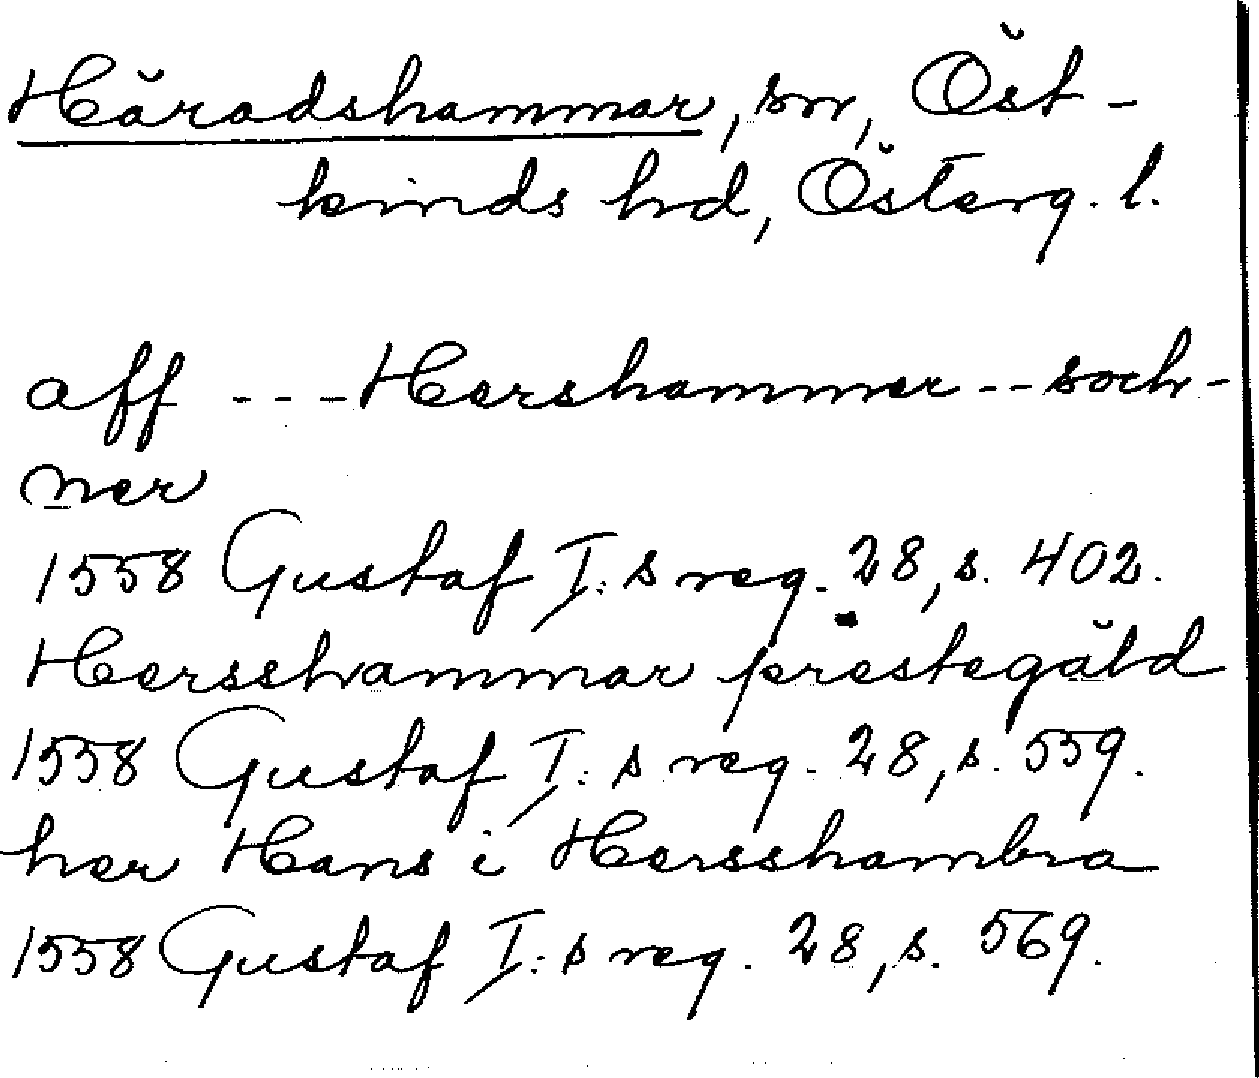 Häradshammar, sn, Öst-
kinds hd, Österg. l.
aff - - - Hershammer - - soch-
ner
1558 Gustaf I:s reg. 28, s. 402.
Hersshammar prestegäld
1558 Gustaf I:s reg. 28, s. 559.
her Hans i Hersshambra
1558 Gustaf I:s reg. 28, s. 569.